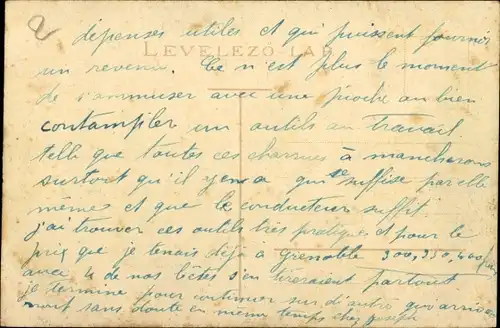 2
dépenses utiles et qui puissent fournir
LEVELEZŐ-LAP
un revenu. Ce n'est plus le moment
de s'ammuser avec une pioche ou bien
contampler un outils au travail
telle que toutes ces charrues à mancherons
surtout qu'il y en a qui se suffise par elle
mêmes et que le conducteur suffit.
j'ai trouver ces outils très pratiques et pour le
prix que je tenais déjà à Grenoble 300, 350, 400
avec 4 de nos bêtes s'en tireraient partout
je termine pour continuer sur d'autre qui
sans doute en même temps chez Joseph